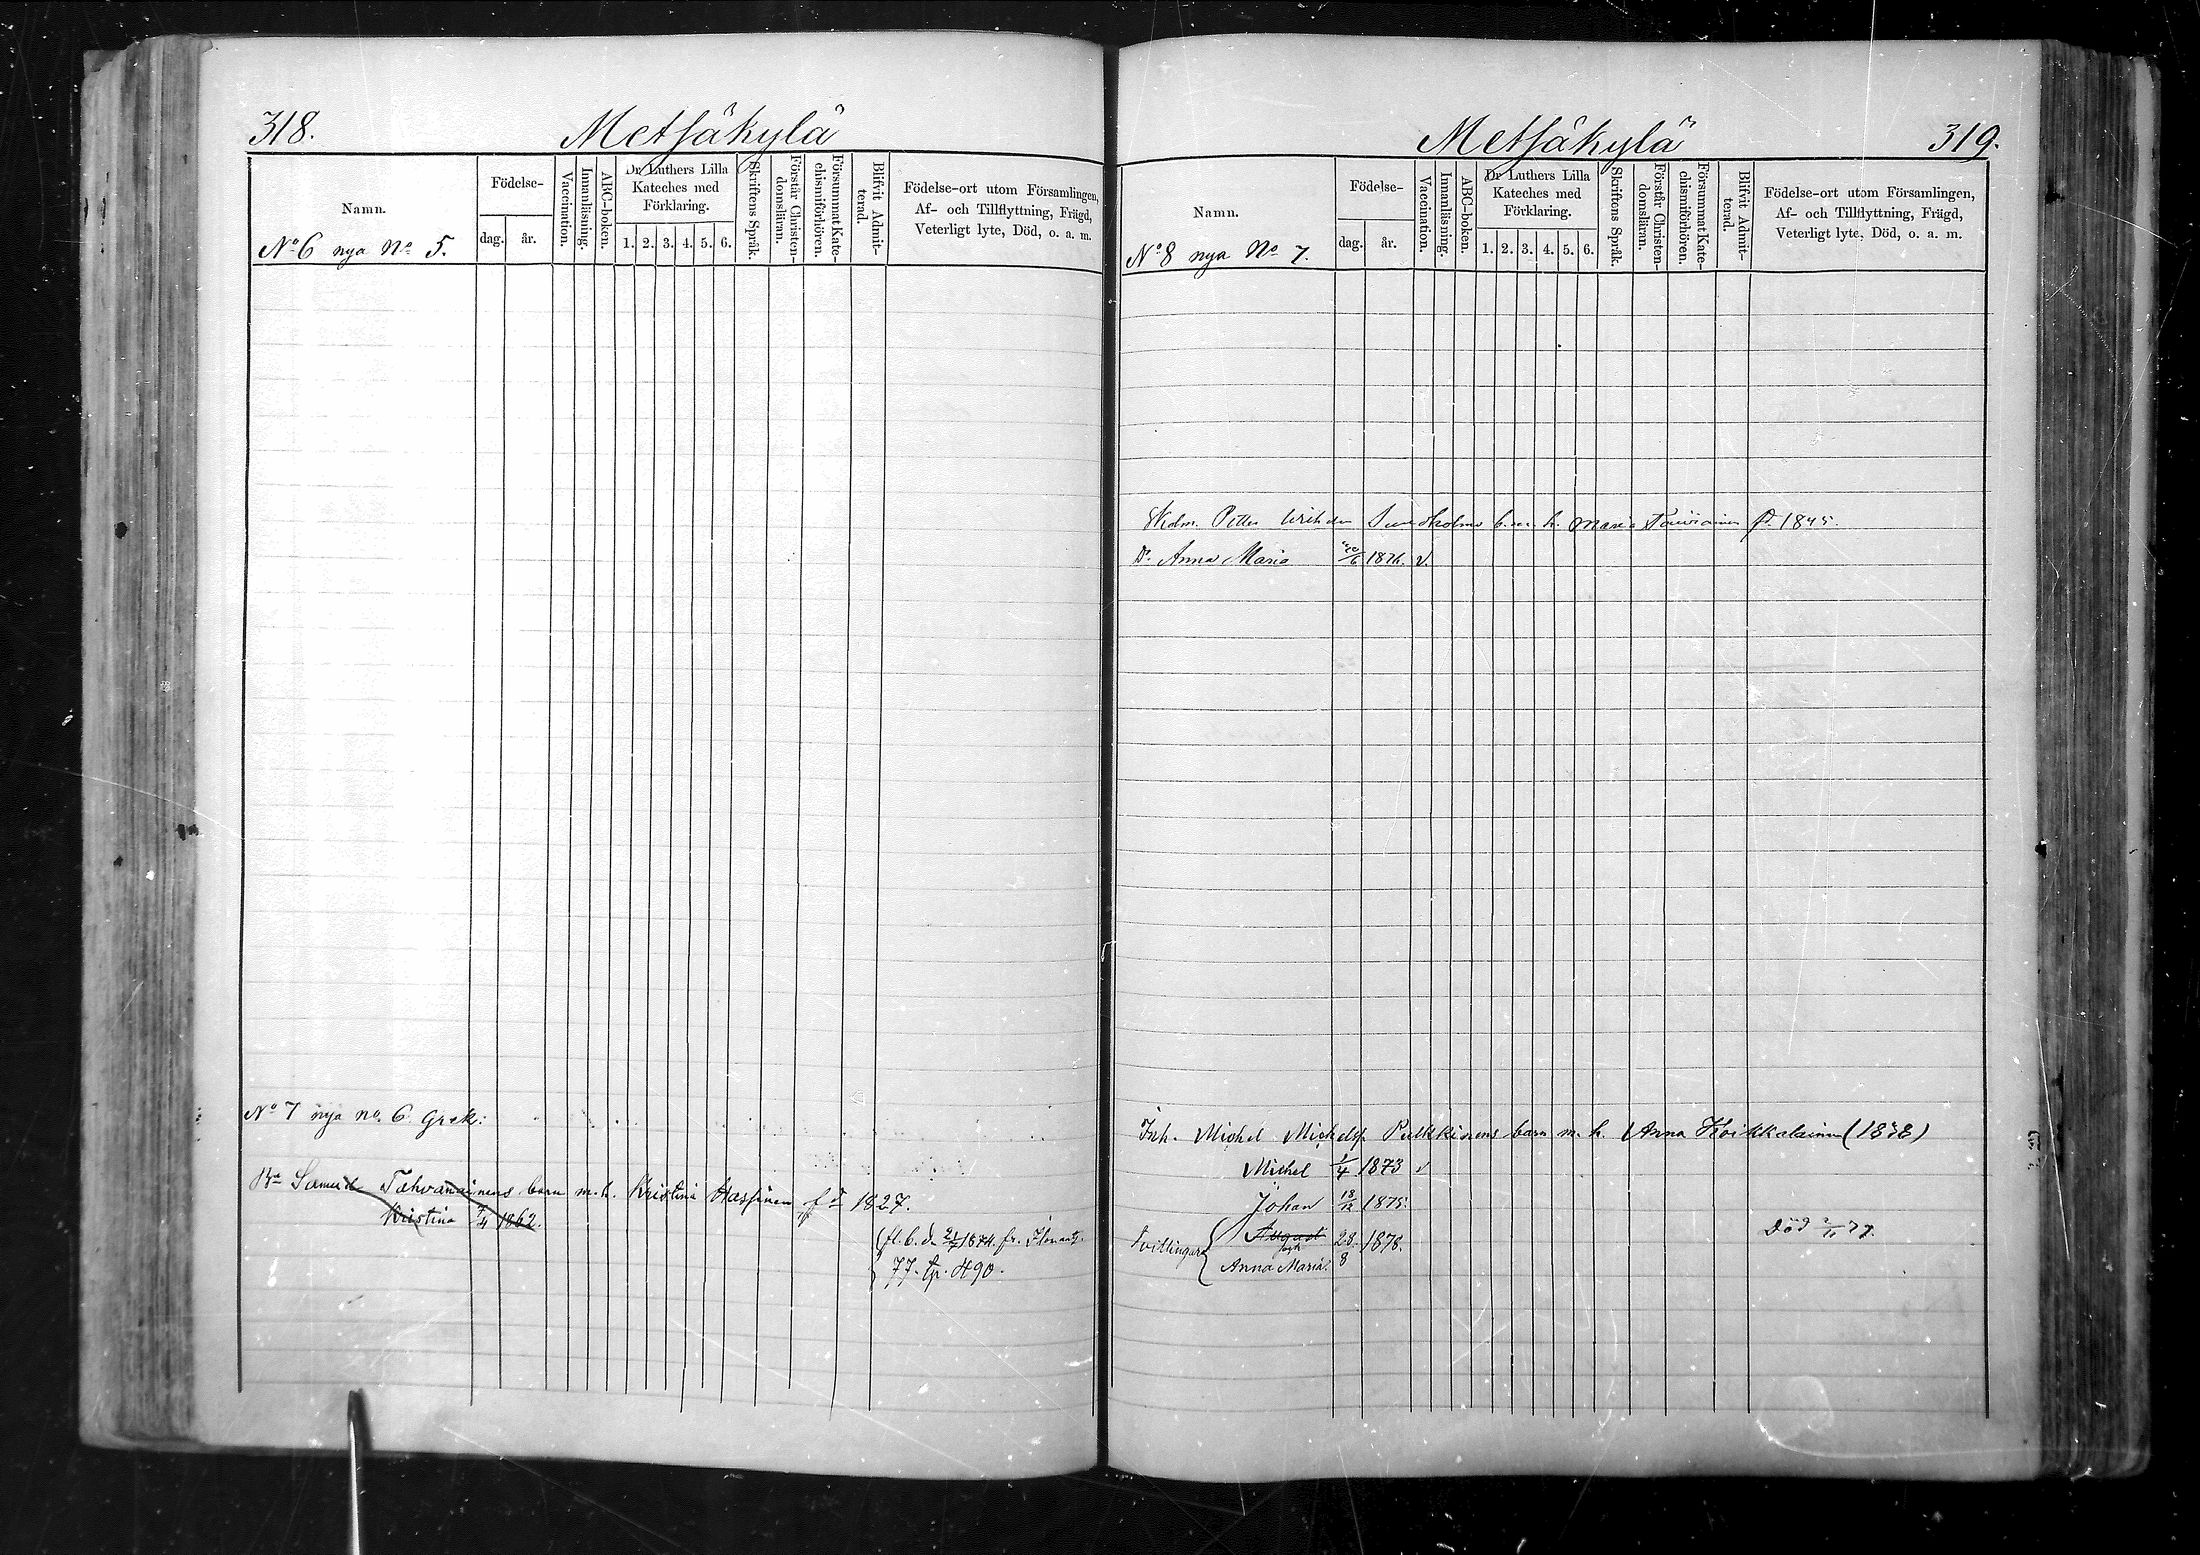 318.
Metsäkylä
Namn.
Födelse-
dag.
år.
Vaccination.
Innanläsning.
ABC-boken.
Dr Luthers Lilla
Kateches med
Förklaring.
1. 2. 3. 4. 5. 6.
Skriftens Språk.
Förstår Christen-
domsläran.
Försummat Kate-
chismiförhören.
Blifvit Admit-
terad.
Födelse-ort utom Församlingen,
Af- och Tillflyttning, Frägd,
Veterligt lyte, Död, o. a. m.
No 6 nya No 5.
No 7 nya no. 6 Grek:
Samuel Tahvanainens barn m. h. Kristina Hassinen fd 1827.
Kristina 1862.
fl. b. d. 1874. fr.
77. tp. 490.
Metsäkylä
319.
Namn.
Födelse-
dag.
år.
Vaccination.
Innanläsning.
ABC-boken.
Dr Luthers Lilla
Kateches med
Förklaring.
1. 2. 3. 4. 5. 6.
Skriftens Språk.
Förstår Christen-
domsläran.
Försummat Kate-
chismiförhören.
Blifvit Admit-
terad.
Födelse-ort utom Församlingen,
Af- och Tillflyttning, Frägd,
Veterligt lyte, Död, o. a. m.
No 8 nya No 7.
Petter b. m. h. Maria 1845.
D. Anna Maria 1876. v.
Inh. Michel Michelsp. Pulkkinens barn m. h. (Anna Koikkalainen (1838)
Michel 1/4 1873 v
Johan 18/12 1875.
Tvillingar August 28 1878. Död
och
Anna Maria. 8